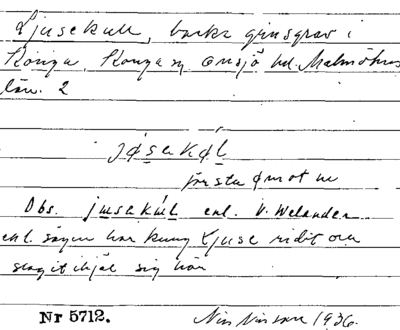 Ljusekull, backe gränsgrav i
Konga, Konga sn Onsjö hd. Malmöhus
län. 2
jøsakøl
första ø mot u
Obs. jusakul enl. V. Welander
enl. sägen har kung Ljuse ridit och
slagit ihjäl sig här
Nr 5712.
Nils Nilsson 1936.